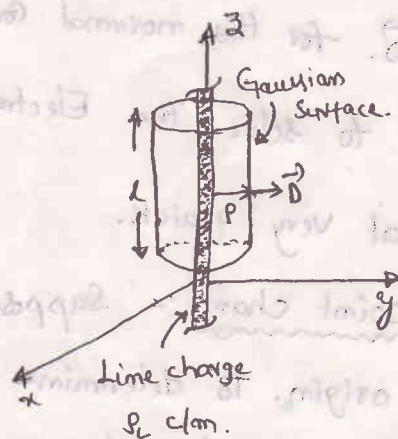 z
Gaussian
Surface.
l
ρ
D⃗
y
x
Line charge
ρL c/m.